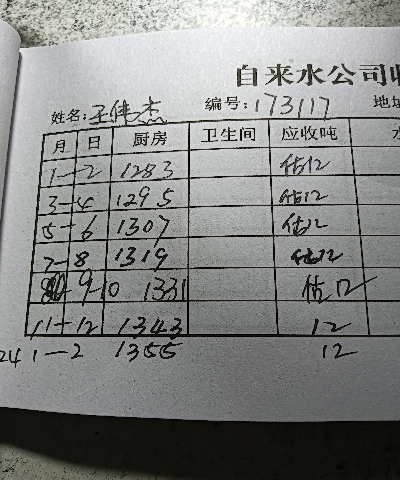 自来水公司收
姓名:王伟杰 编号:173117 地址
月 日 厨房 卫生间 应收吨 水
1-2 1283 估12
3-4 1295 估12
5-6 1307 估12
7-8 1319 估12
9-10 1331 估12
11-12 1343 12
24 1-2 1355 12